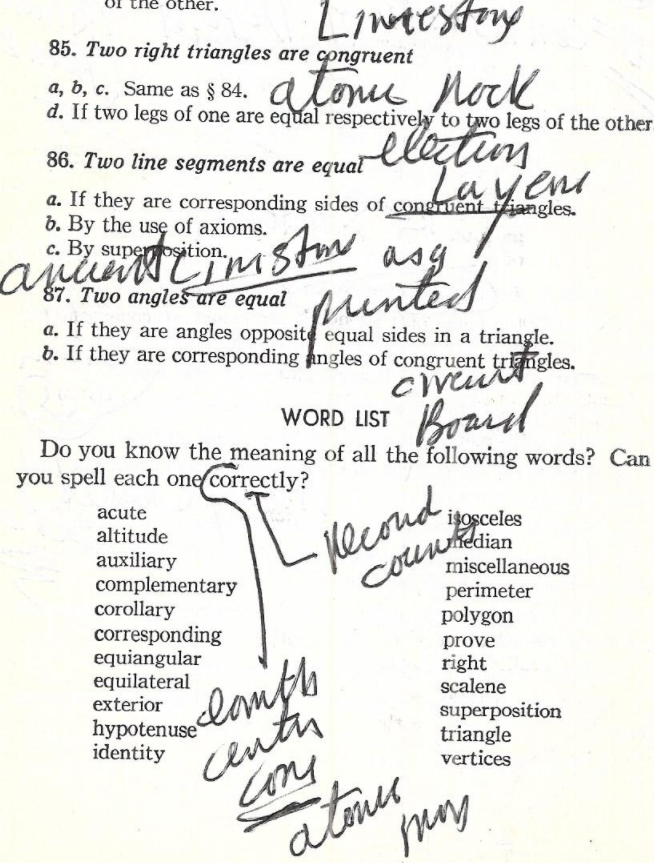 of the other.
Limestone
85. Two right triangles are congruent
a, b, c. Same as § 84.
atomic Rock
d. If two legs of one are equal respectively to two legs of the other
86. Two line segments are equal
election
Layers
a. If they are corresponding sides of congruent triangles.
b. By the use of axioms.
c. By superposition.
ancient Limestone as a
87. Two angles are equal
printed
a. If they are angles opposite equal sides in a triangle.
b. If they are corresponding angles of congruent triangles.
circuit
WORD LIST
Board
Do you know the meaning of all the following words? Can
you spell each one correctly?
acute
altitude
auxiliary
complementary
corollary
corresponding
equiangular
equilateral
exterior
hypotenuse
identity
Record
isosceles
median
miscellaneous
perimeter
polygon
prove
right
scalene
superposition
triangle
vertices
earth
center
core
atomic